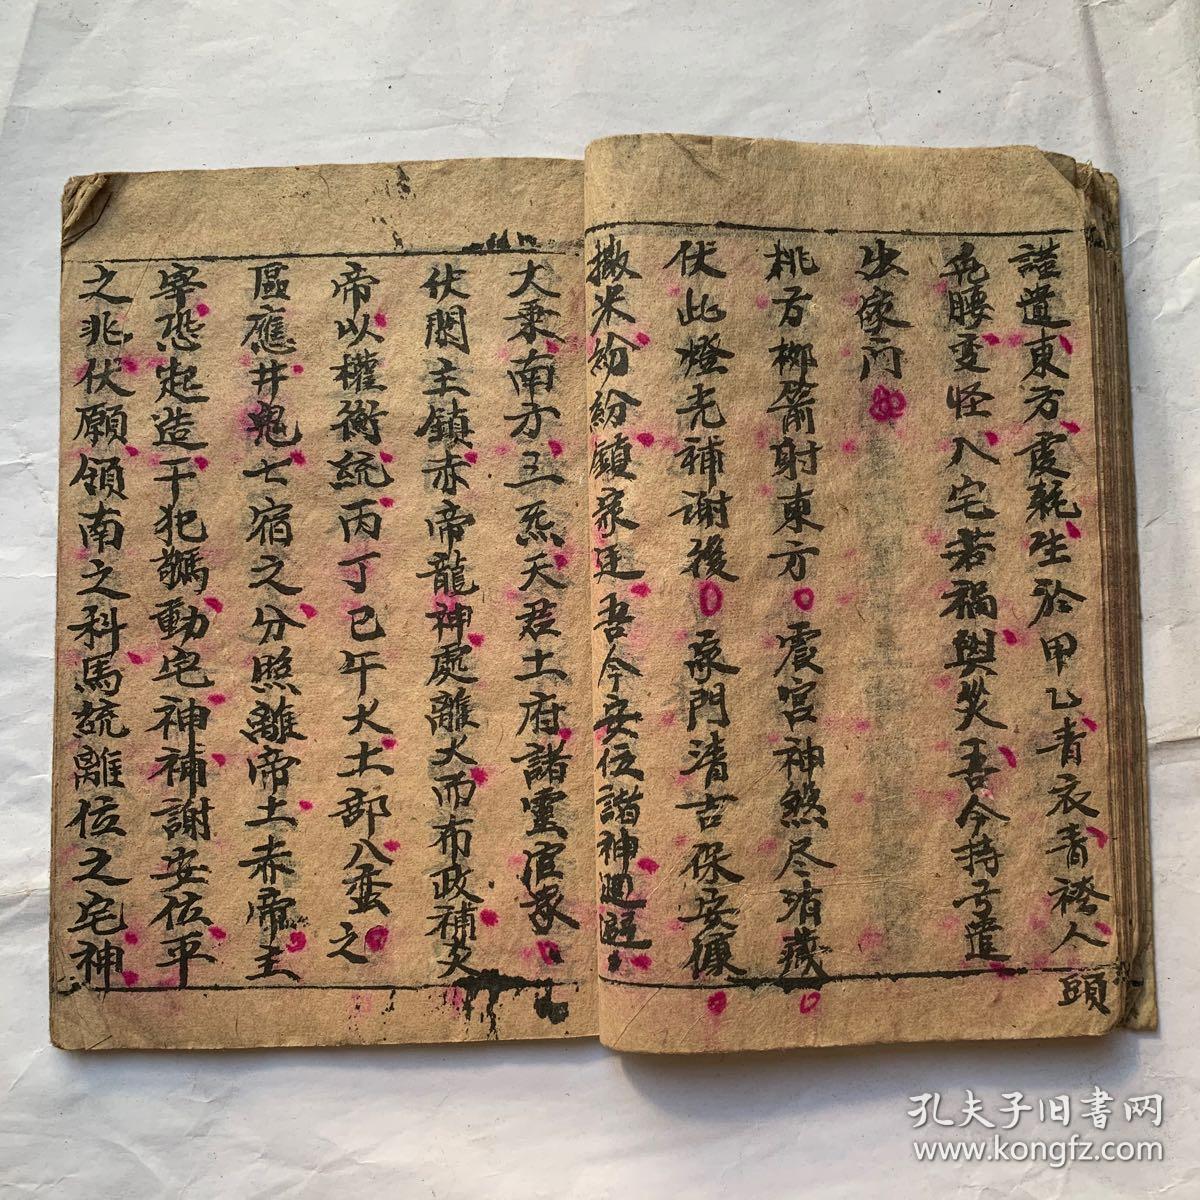 諠遣東方虛耗生於甲乙青衣青襟人頭
兔腰支怪入宅若禍與災吾今持弓遣
出家門
桃方柳箭射東方震宮神煞尽消藏
伏此燈光補謝後家門清吉保安康
撒米紛紛鎮家廷吾今安位諸神迴避
大乘南方三炁天君土府諸灵官眾
伏聞主鎮赤帝龍神處離火而布政補炎
帝以權衡統丙丁巳午火土部八蛮之
區應井鬼七宿之分照離帝土赤帝主
宰恐起造干犯驚動宅神補謝安位平
之兆伏願領南之科馬統離位之宅神
孔夫子旧書网
www.kongfz.com